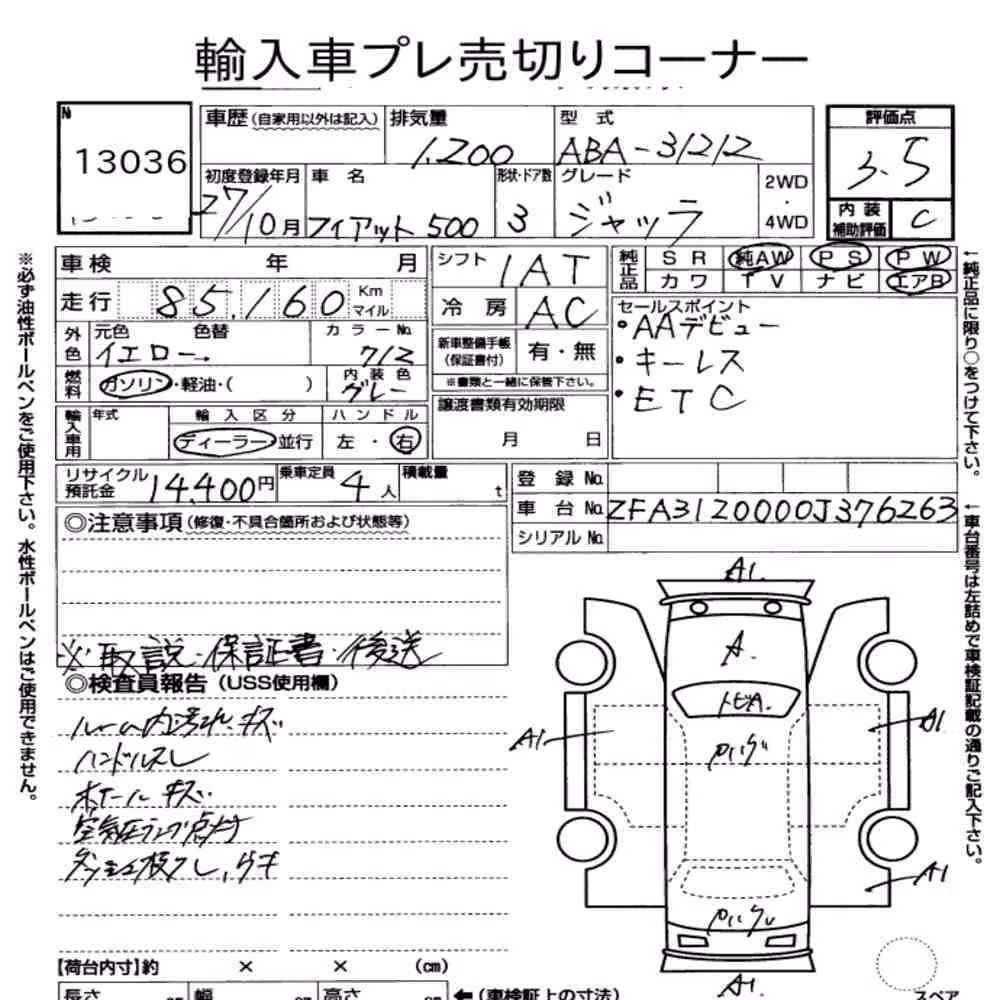 輸入車プレ売切りコーナー
№ 13036
車歴 (自家用以外は記入)
排気量 1,200
型式 ABA-31212
評価点 3.5
初度登録年月 27/10月
車名 フィアット 500
形状・ドア数 3
グレード ジャッラ
2WD・4WD
内装補助評価 C
車検 年 月
シフト IAT
純正品 SR 純AW PS PW
カワ TV ナビ エアB
走行 85,160 Km マイル
冷房 AC
セールスポイント
・AAデビュー
・キーレス
・ETC
外色 元色 イエロー 色替
カラーNo. 712
新車整備手帳(保証書付) 有・無
※書類と一緒に保管下さい。
燃料 ガソリン・軽油・( )
内装色 グレー
譲渡書類有効期限
月 日
輸入車用 年式
輸入区分 ディーラー 並行
ハンドル 左・右
リサイクル預託金 14,400円
乗車定員 4人
積載量 t
登録No.
車台No. ZFA3120000J376263
シリアルNo.
◎注意事項 (修復・不具合箇所および状態等)
※取説・保証書 後送
◎検査員報告 (USS使用欄)
ルーム内汚れ、キズ
ハンドルスレ
ホイールキズ
空気圧ランプ点灯
ダッシュ板スレ,ウキ
A1.
A.
トビA.
A1
A1
A1
A1
【荷台内寸】約 × × (cm)
長さ cm 幅 cm 高さ cm
←(車検証上の寸法)
スペア
※必ず油性ボールペンをご使用下さい。水性ボールペンはご使用できません。
←純正品に限り○をつけて下さい。
←車台番号は左詰めで車検証記載の通りご記入下さい。